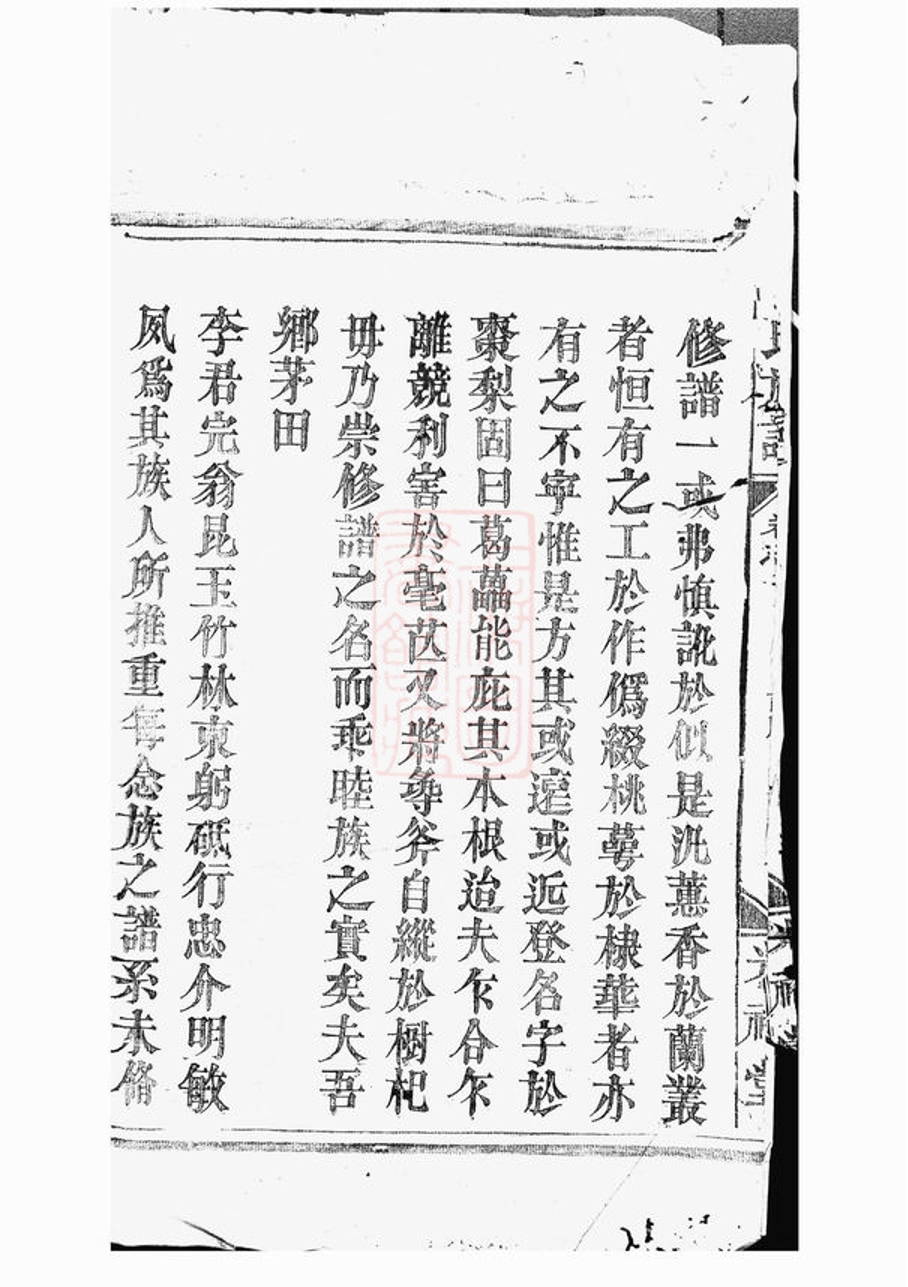 修譜一或弗慎訛於似是汎蕙香於蘭叢
者恒有之工於作僞綴桃萼於棣華者亦
有之不寧惟是方其或遠或近登名字於
棗梨固曰葛藟能庇其本根迨夫乍合乍
離競利害於毫芒又將尋斧自縱於樹杞
毋乃崇修譜之名而乖睦族之實矣夫吾
鄉茅田
李君完翁昆玉竹林束躬砥行忠介明敏
夙爲其族人所推重每念族之譜系未脩